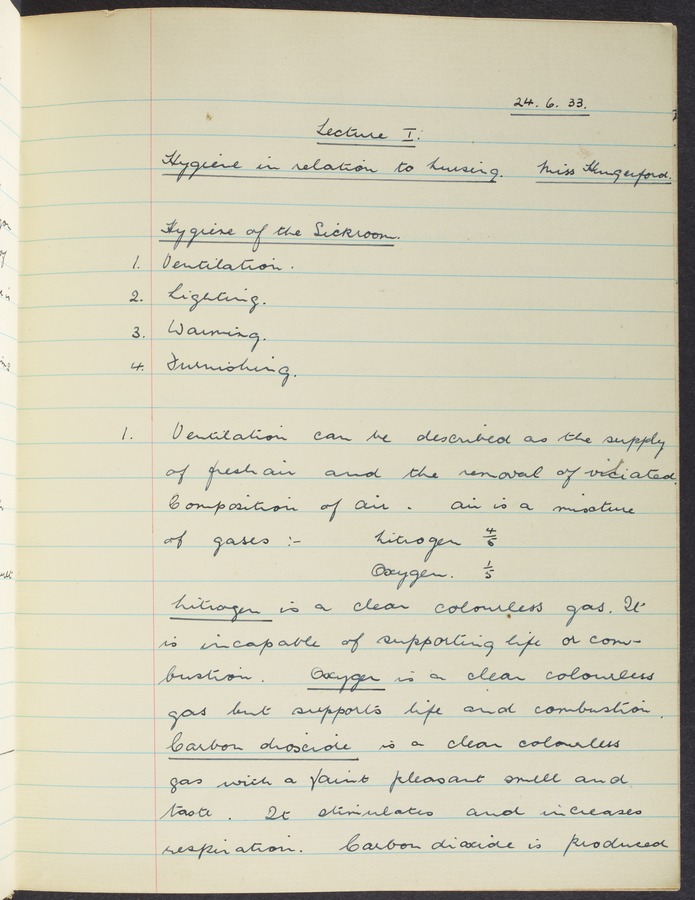 24. 6. 33.
Lecture I.
Hygiene in relation to nursing. Miss Hungerford.
Hygiene of the Sickroom.
1. Ventilation.
2. Lighting.
3. Warming.
4. Furnishing.
1. Ventilation can be described as the supply
of fresh air and the removal of vitiated.
Composition of air. air is a mixture
of gases :- Nitrogen 4/5
Oxygen. 1/5
Nitrogen is a clear colourless gas. It
is incapable of supporting life or com-
bustion. Oxygen is a clear colourless
gas but supports life and combustion.
Carbon dioxide is a clear colourless
gas with a faint pleasant smell and
taste. It stimulates and increases
respiration. Carbon dioxide is produced